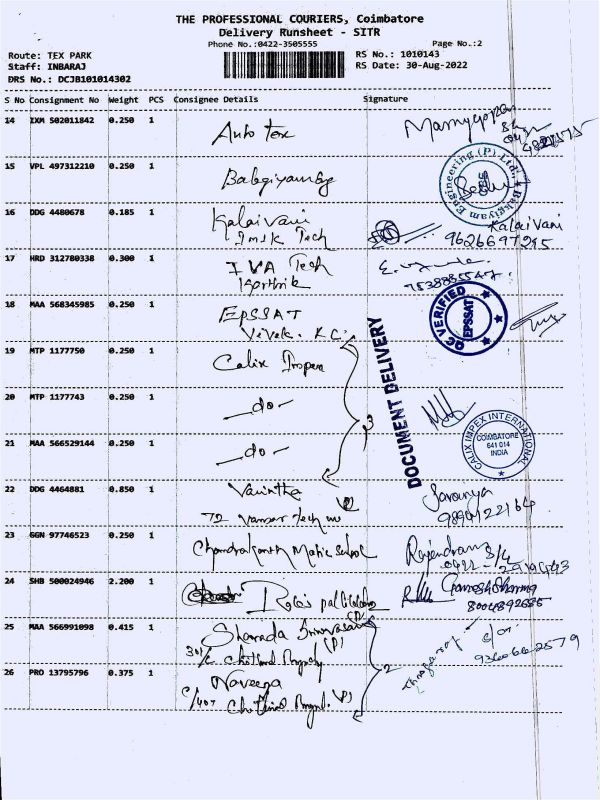 THE PROFESSIONAL COURIERS, Coimbatore
Delivery Runsheet - SITR
Phone No.:0422-3505555
Page No.:2
Route: TEX PARK
Staff: INBARAJ
DRS No.: DCJB101014302
RS No.: 1010143
RS Date: 30-Aug-2022
S No Consignment No Weight PCS Consignee Details Signature
14 IXM 502011842 0.250 1 Auto Tex
15 VPL 497312210 0.250 1
Engineering (P) Ltd.,
16 DDG 4480678 0.185 1 Kalaivani
Tech
Kalaivani
9626697295
17 HRD 312780338 0.300 1 IVA Tech
Karthik
7538885547
18 MAA 568345985 0.250 1 EPSSAT
Vivek. K.C.
QC VERIFIED
EPSSAT
19 MTP 1177750 0.250 1 Calix
DOCUMENT DELIVERY
3
20 MTP 1177743 0.250 1 -do-
21 MAA 566529144 0.250 1 -do-
CALIX IMPEX INTERNATIONAL
COIMBATORE
641 014
INDIA
22 DDG 4464881 0.850 1
72
Saranya
23 GGN 97746523 0.250 1 Chandrakanth Matric School
Rajendran
24 SHB 500024946 2.200 1
Ganesh Sharma
8004892685
25 MAA 566991098 0.415 1 Sharada Srinivasan
(P)
2
26 PRO 13795796 0.375 1 Naveena
C/407
(P)